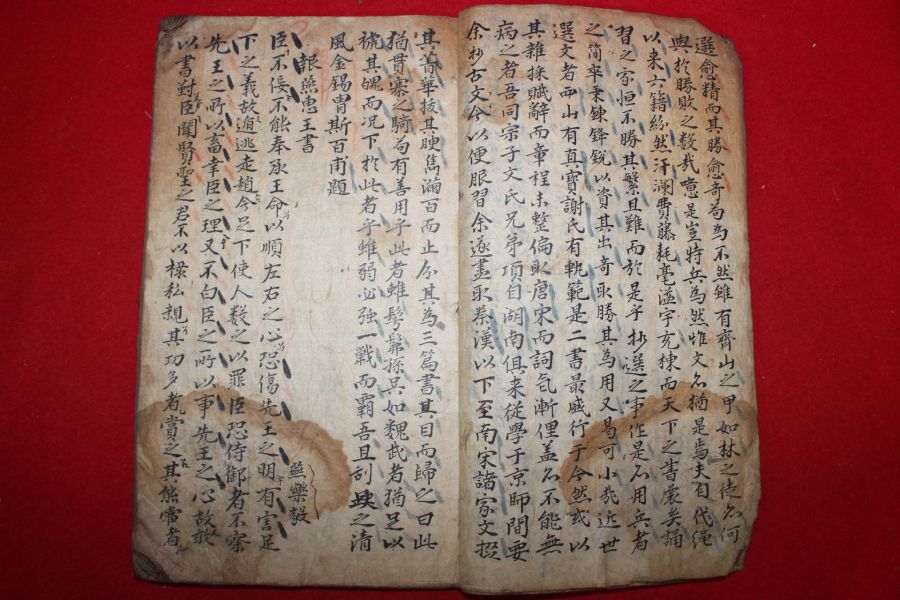 選愈精而其勝愈奇苟為不然雖有齊山之甲如林之徒亦何
與於勝敗之数哉噫是豈特兵為然惟文亦猶是焉夫自代繩
以来六籍紛然汗瀾費藤耗毫溢宇充棟而天下之書裏矣誦
習之家恒不勝其繁且難而於是乎抄選之事作是亦用兵者
之简卒秉鍊鋒銳以資其出奇取勝其為用又曷可小哉近世
選文者西山有真寶謝氏有軌範是二書最盛行于今然或以
其雜採賦辭而章程未整偏取唐宋而詞気漸俚盖亦不能無
病之者吾同宗子文氏兄弟項自湖南俱来從學于京師間要
余抄古文今以便服習余遂盡取秦漢以下至南宋諸家文掇
其菁華拔其腴雋滿百而止分其為三篇書其目而歸之曰此
猶貫寨之騎苟有善用乎此者雖髣髴孫吳如魏武者猶足以
褫其魄而况下於此者乎雖弱必強一戰而霸吾且刮眼之清
風金錫胄斯百甫題
報燕惠王書
燕樂毅
臣不佞不能奉承王命以順左右之心恐傷先王之明有害足
下之義故遁逃走趙今足下使人数之以罪臣恐侍御者不察
先王之所以畜幸臣之理又不白臣之所以事先王之心故敢
以書對臣聞賢聖之君不以禄私親其功多者賞之其能當者